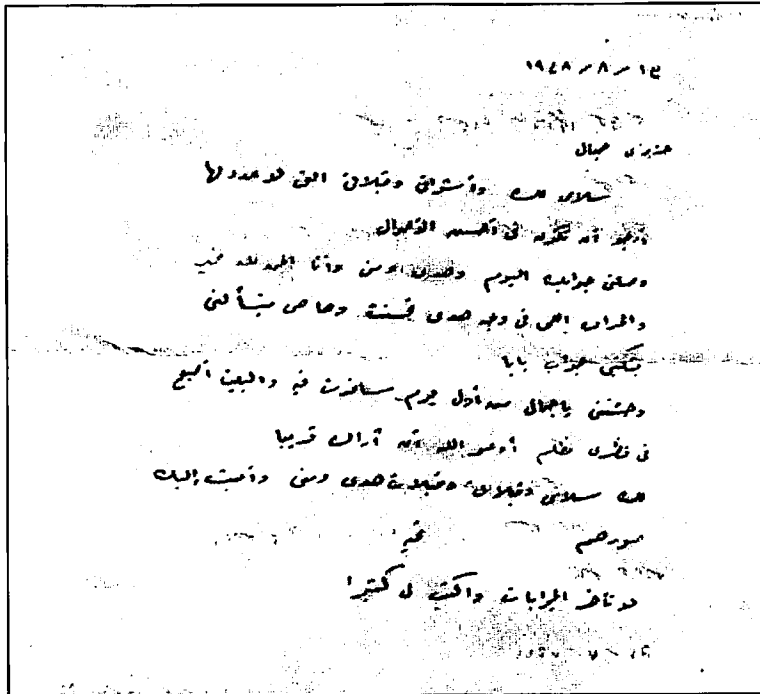 ١٣ - ٨ - ١٩٤٨
عزيزى جمال
سلامى لك وأشواقى وقبلاتى التى لا عدد لها
أرجو أن تكون فى أحسن الأحوال
وصلنى جوابك اليوم وهدى ومنى وأنا الحمد لله بخير
والحرارة اللى فى وجه هدى تحسنت وهى بتسألنى
بتكتبى جواب بابا
وحشتنى ياجمال من أول يوم سافرت فيه والبيت أصبح
فى نظرى مظلم أدعو الله أن أراك قريبا
لك سلامى وقبلاتى وقبلات هدى ومنى وأبعث إليك
صورهم
تحية
لا تأخر الجوابات واكتب لى كثيرا